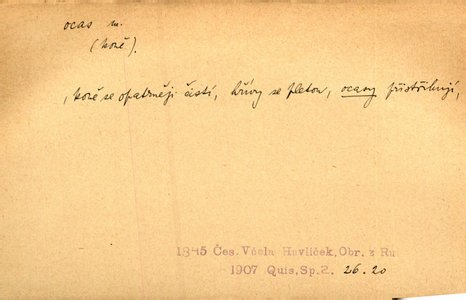 ocas m.
(koně).
, koně se opatrněji čistí, hřívy se pletou, ocasy přistřihují,
1845 Čes. Včela Havlíček, Obr. z Ru
1907 Quis, Sp. 2. 26.20